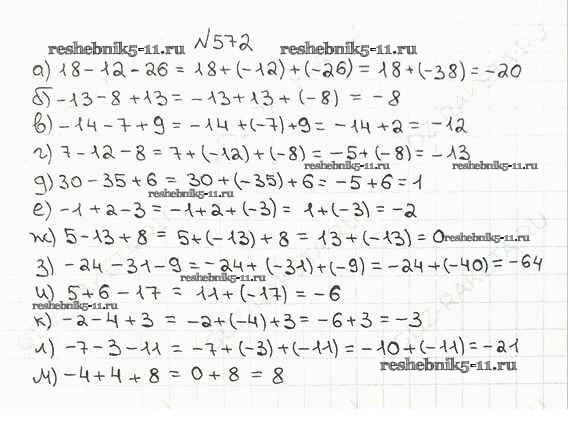 №572
reshebnik5-11.ru reshebnik5-11.ru
а) 18-12-26 = 18+(-12)+(-26) = 18+(-38) = -20
б) -13-8+13 = -13+13+(-8) = -8
в) -14-7+9 = -14+(-7)+9 = -14+2 = -12
г) 7-12-8 = 7+(-12)+(-8) = -5+(-8) = -13
reshebnik5-11.ru reshebnik5-11.ru
д) 30-35+6 = 30+(-35)+6 = -5+6 = 1
reshebnik5-11.ru
е) -1+2-3 = -1+2+(-3) = 1+(-3) = -2
ж) 5-13+8 = 5+(-13)+8 = 13+(-13) = 0 reshebnik5-11.ru
з) -24-31-9 = -24+(-31)+(-9) = -24+(-40) = -64
reshebnik5-11.ru
и) 5+6-17 = 11+(-17) = -6
reshebnik5-11.ru
к) -2-4+3 = -2+(-4)+3 = -6+3 = -3
л) -7-3-11 = -7+(-3)+(-11) = -10+(-11) = -21
reshebnik5-11.ru
м) -4+4+8 = 0+8 = 8